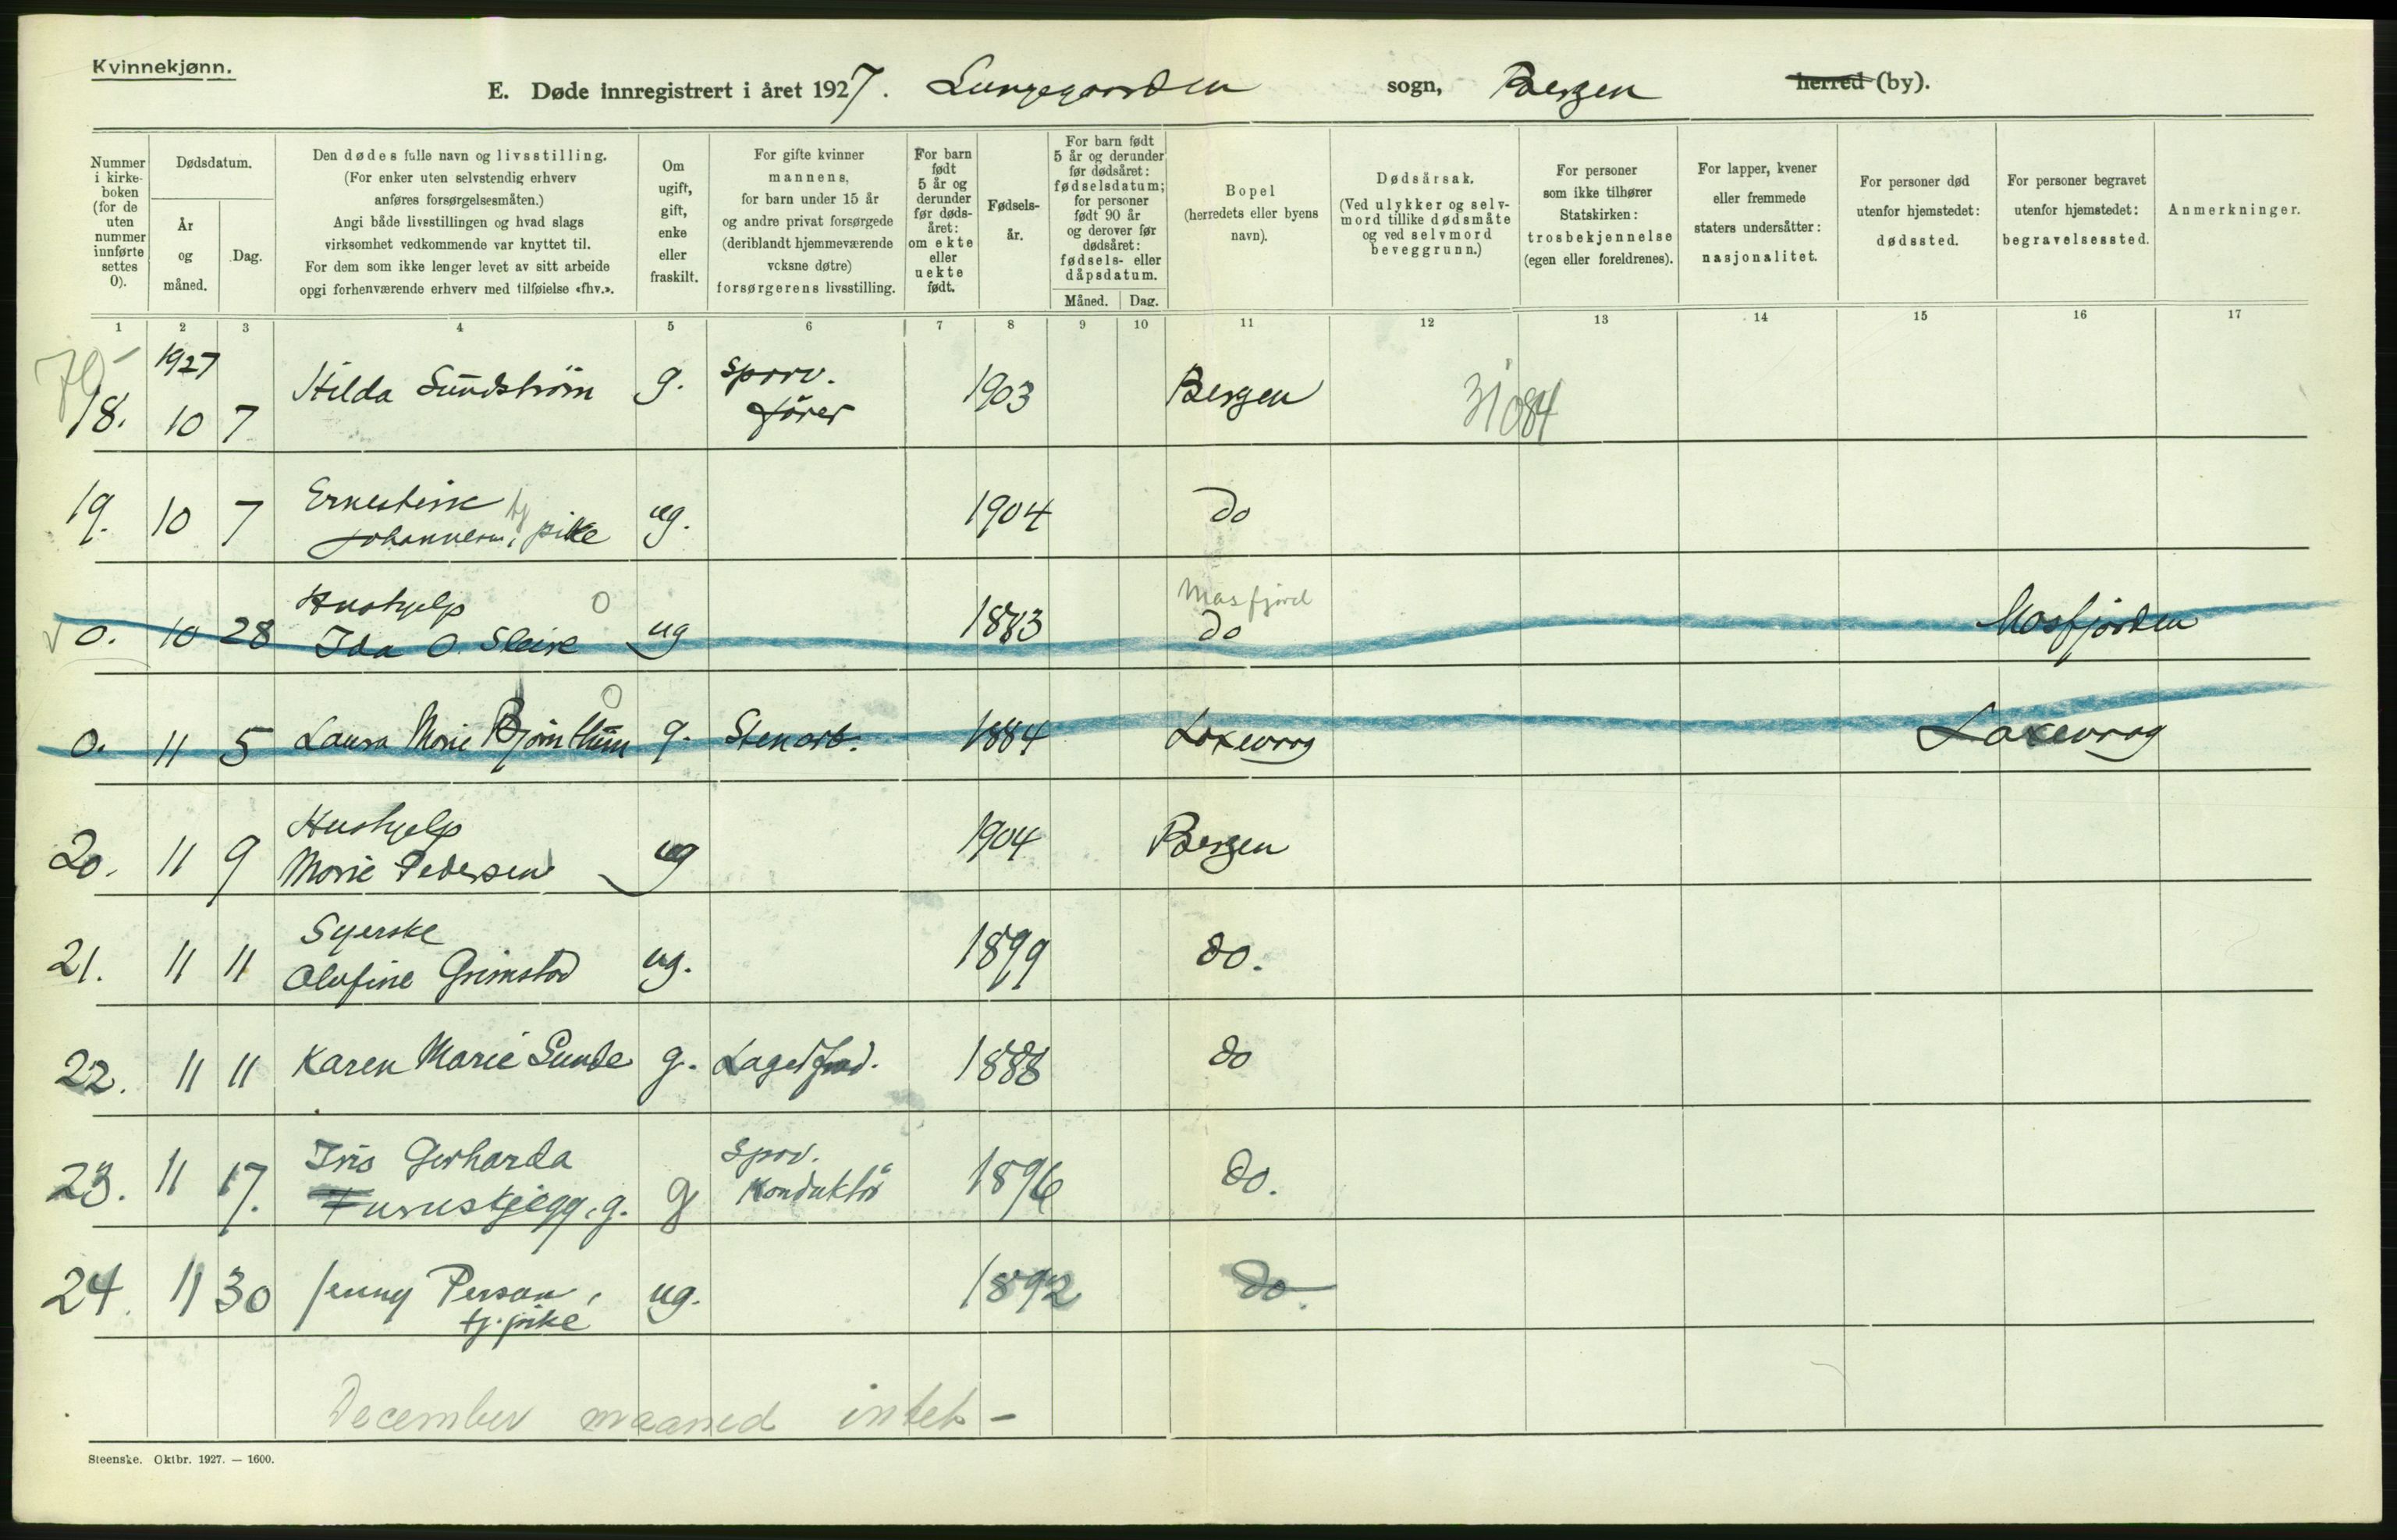 Kvinnekjønn.
E. Døde innregistrert i året 1927. Lungegaarden sogn, Bergen herred (by).
Nummer i kirke-boken (for de uten nummer innførte settes 0).
Dødsdatum.
År og måned.
Dag.
Den dødes fulle navn og livsstilling.
(For enker uten selvstendig erhverv
anføres forsørgelsesmåten.)
Angi både livsstillingen og hvad slags
virksomhet vedkommende var knyttet til.
For dem som ikke lenger levet av sitt arbeide
opgi forhenværende erhverv med tilføielse «fhv.».
Om ugift, gift, enke eller fraskilt.
For gifte kvinner
mannens,
for barn under 15 år
og andre privat forsørgede
(deriblandt hjemmeværende
voksne døtre)
forsørgerens livsstilling.
For barn født 5 år og derunder før døds-året: om ekte eller uekte født.
Fødsels-år.
For barn født
5 år og derunder
før dødsåret:
fødselsdatum;
for personer
født 90 år
og derover før
dødsåret:
fødsels- eller
dåpsdatum.
Måned. Dag.
Bopel
(herredets eller byens
navn).
Dødsårsak.
(Ved ulykker og selv-
mord tillike dødsmåte
og ved selvmord
beveggrunn.)
For personer
som ikke tilhører
Statskirken:
trosbekjennelse
(egen eller foreldrenes).
For lapper, kvener
eller fremmede
staters undersåtter:
nasjonalitet.
For personer død
utenfor hjemstedet:
dødssted.
For personer begravet
utenfor hjemstedet:
begravelsessted.
Anmerkninger.
1 2 3 4 5 6 7 8 9 10 11 12 13 14 15 16 17
1927
18. 10 7 Hilda Sundstrøm g. Sporv. fører 1903 Bergen 31084
19. 10 7 Ernestine
Johannesen, tj pike ug. 1904 do
Hushjelp 0 Masfjord
0. 10 28 Ida O. Sleire ug 1883 do Masfjorden
0
0. 11 5 Laura Marie Bjørnthun g. Stenarb. 1884 Laxevaag Laxevaag
Hushjelp
20. 11 9 Marie Pedersen ug 1904 Bergen
Syerske
21. 11 11 Olufine Grimstad ug. 1899 do.
22. 11 11 Karen Marie Lunde g. 1888 do
23. 11 17. Iris Gerharda
Furuskjegg, g. g Sporv. Konduktør 1896 do.
24. 11 30 Jenny Person,
tj. pike ug. 1892 do.
December maaned intet -
Steenske. Oktbr. 1927. — 1600.